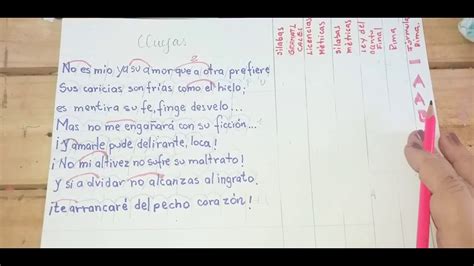 No es mio ya su amor que a otra prefiere
Sus caricias son frias como el hielo;
es mentira su fe, finge desvelo...
Mas no me engañará con su ficción...
¡Y amarle pude delirante, loca!
¡No mi altivez no sufre su maltrato!
Y si a olvidar no alcanzas al ingrato.
¡te arrancaré del pecho corazón!
Silabas
Licencias
Méticas
Silabas
méticas
Ley del
Final
Rima
Rima.
A
A